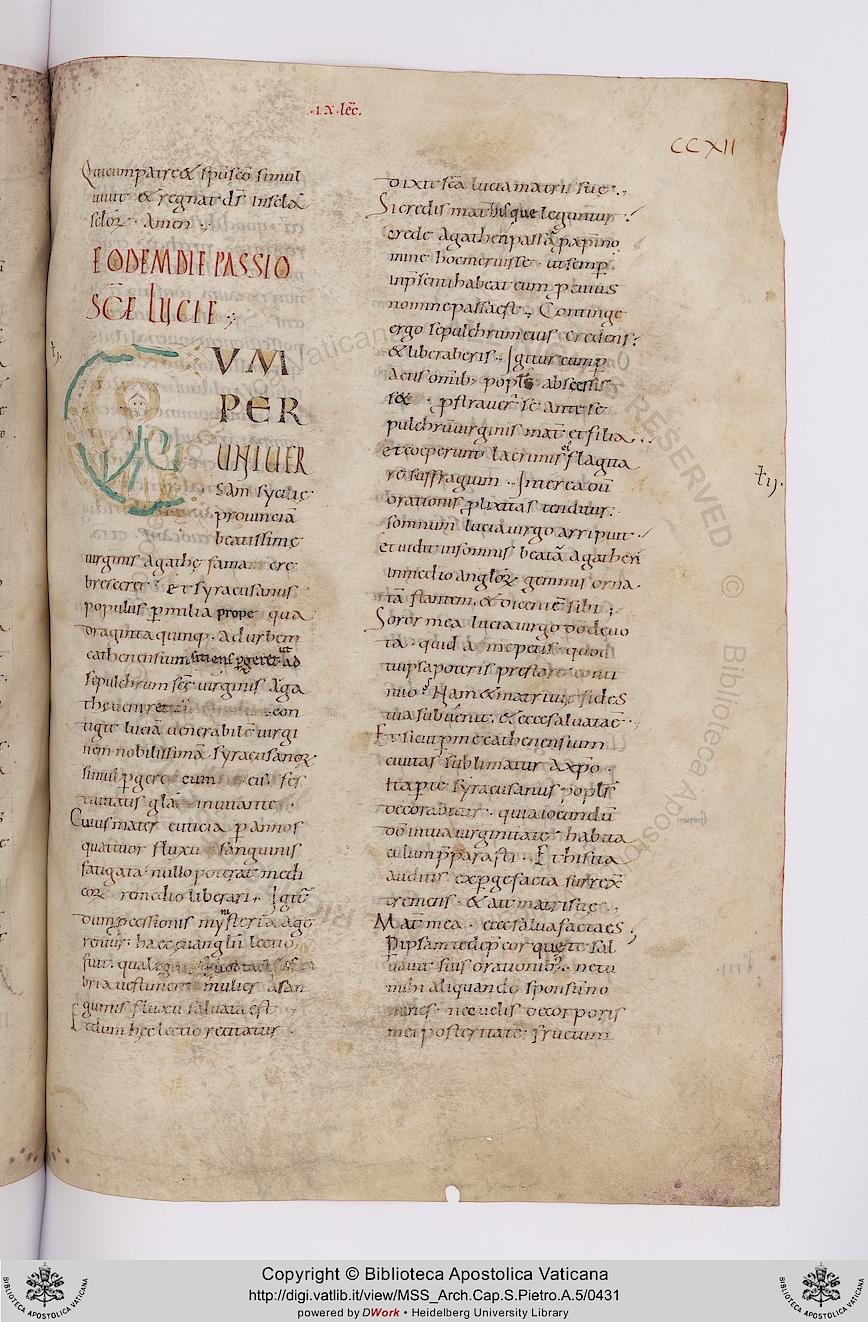 .IX. lec̄.
CCXII
Qui cum patre & sp̄u sc̄o simul
uiuit & regnat d̄s in sc̄la
sc̄lor̄. Amen.
EODEM DIE PASSIO
SC̄E LUCIE
CVM
PER
UNIUER
sam sycilię
prouinciā
beatissimę
uirginis agathę fama cre
bresceret. Et syracusanus
populus p milia prope qua
draginta quinq. ad urbem
cathenensium ... pgeret ut ad
sepulchrum scē uirginis aga
the ueniret ... con
tigit luciā uenerabilē uirgi
nem nobilissimā syracusanor̄
simul pgere cum ... fes
tiuitatis gl̄a inuitante.
Cuius mater euticia p annos
quattuor fluxū sanguinis
fatigata nullo poterat medi
cor̄ remedio liberari. Igit̄
dum pcessionis mysteria age
rentur. haec euanglii lectio
fuit. qual ...
bria uestimenti mulier a san
guinis fluxu saluata est
Et dum hec lectio recitatur.
dixit scā lucia matri suę.
Si credis mat̄ hisque leguntur
crede agathen passā p xpi no
mine hoc meruisse. ut semp
in p̄senti habeat eum p cuius
nomine passa est. Continge
ergo sepulchrum eius credens
& liberaberis. Igitur cum p
actis omnib; popl̄s abscessis
s& . p̄strauer̄ se ante se
pulchrū uirginis mat̄ et filia
et coeperunt lacrimis et flagita
re suffragium. Interea dū
orationis plixitas tenditur.
somnum lucia uirgo arripuit
et uidit in somnis beatā agathen
in medio anglor̄ gemmis orna
tā stantem, & dicentē sibi;
Soror mea lucia uirgo dō deuo
ta. quid a me petis. quod
tu ipsa poteris prestare conti
nuo. Nam & matri tuę fides
tua subuenit, & ecce saluatae.
Et sicut p me cathenensium
ciuitas sublimatur a xp̄o.
Ita p te syracusanus popl̄s
decorabitur. quia iocundū
dō in tua uirginitate habita
culum p̄parasti. Et his ita
auditis expgefacta surrex̄
tremens. & ait matri suę.
Mat̄ mea. ecce salua facta es;
P ipsam te dep̄cor que te sal
uauit suis orationib;. ne tu
mihi aliquando sponsū no
mines. nec uelis de corporis
mei posteritate fructum
Copyright © Biblioteca Apostolica Vaticana
http://digi.vatlib.it/view/MSS_Arch.Cap.S.Pietro.A.5/0431
powered by DWork • Heidelberg University Library
BIBLIOTECA APOSTOLICA VATICANA
BIBLIOTECA APOSTOLICA VATICANA